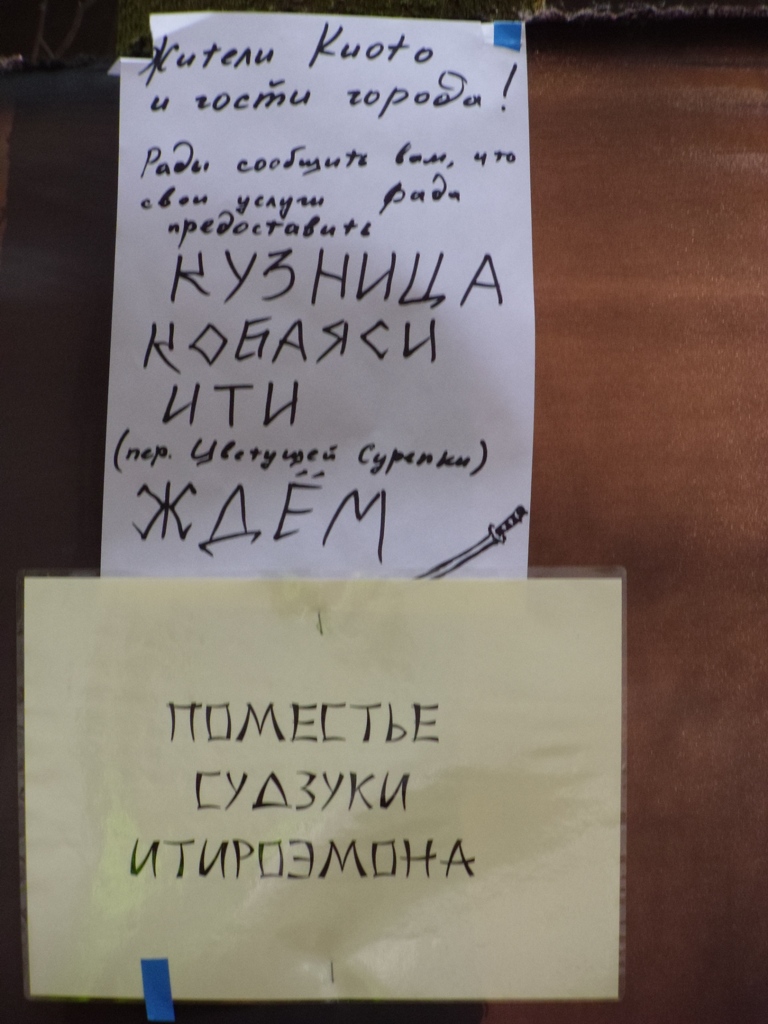 Жители Киото
и гости города!
Рады сообщить вам, что
свои услуги рада
предоставить
КУЗНИЦА
КОБАЯСИ
ИТИ
(пер. Цветущей Сурепки)
ЖДЁМ
ПОМЕСТЬЕ
СУДЗУКИ
ИТИРОЭМОНА